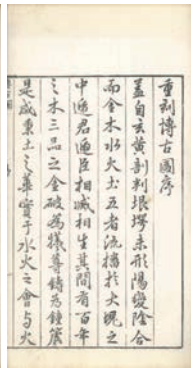 重刻博古圖序
蓋自玄黃剖判垠堮未形陽變陰合
而金木水火土五者流播於大塊之
中遞君遞臣相滅相生其間有百年
之木三品之金破為犧尊鑄為鍾簴
是咸秉土之華實于水火之會与火